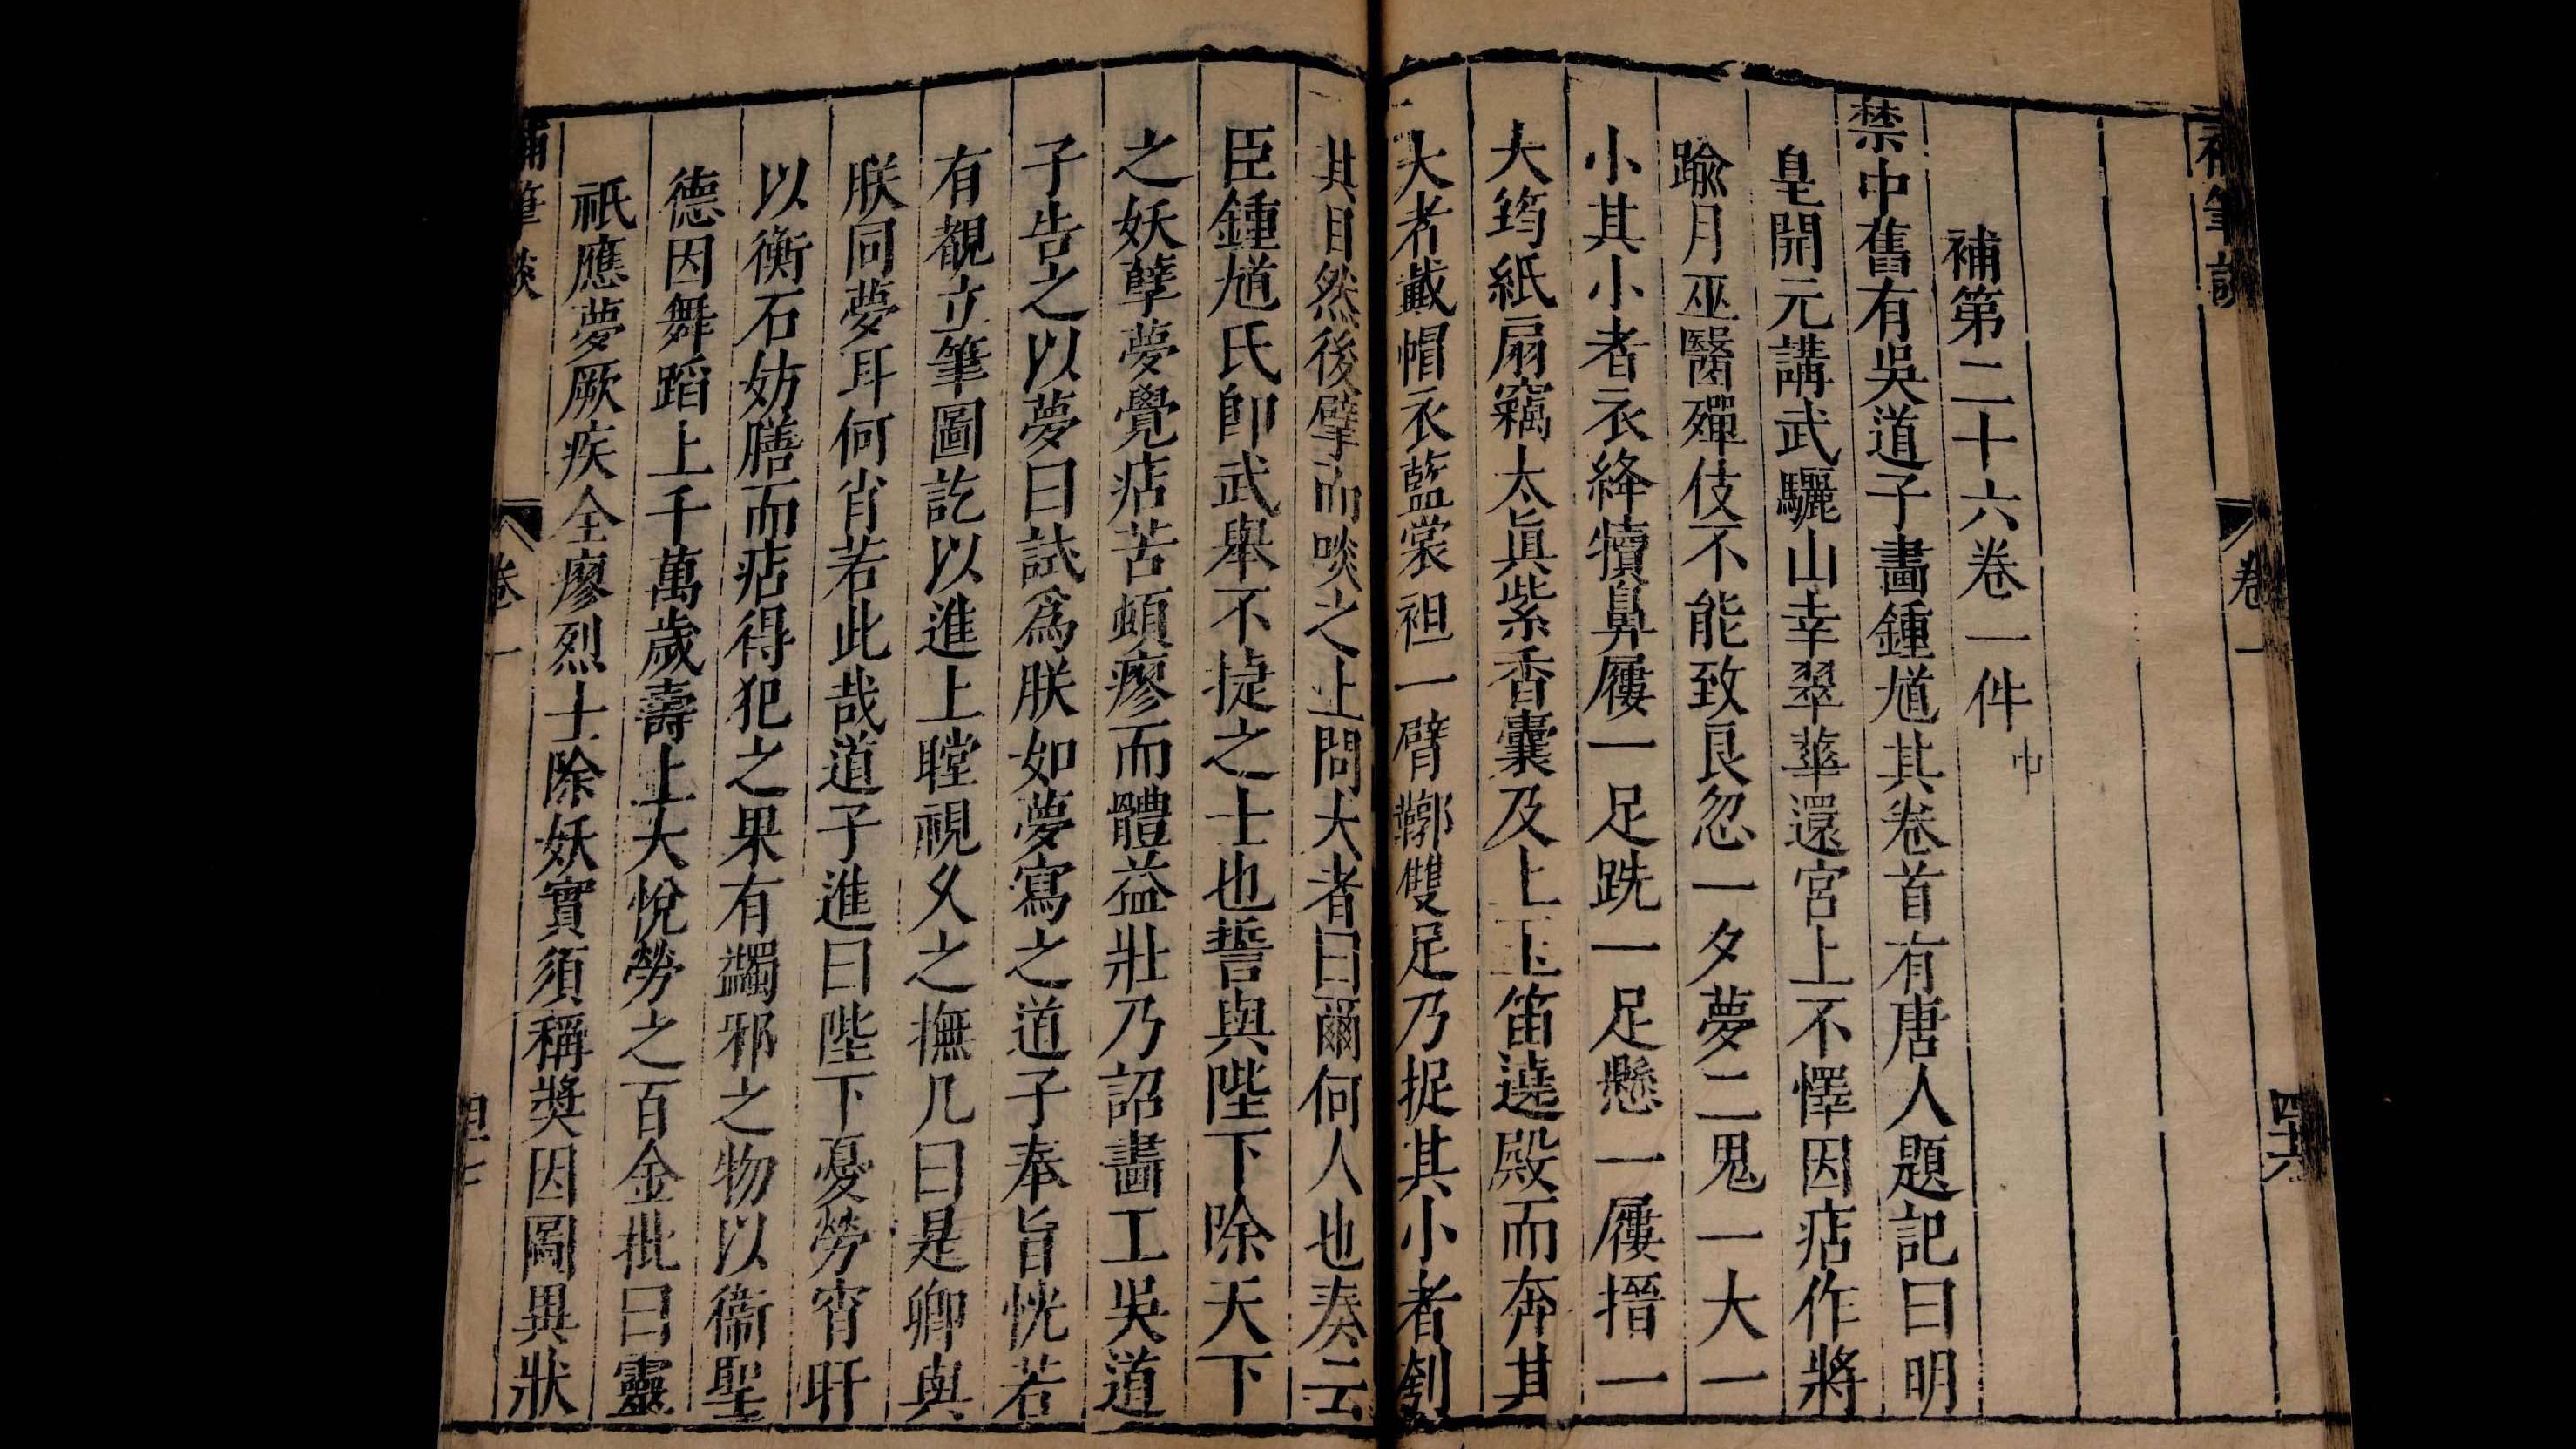 補筆談
卷一
四六
補第二十六卷一件
禁中舊有吳道子畫鍾馗其卷首有唐人題記曰明
皇開元講武驪山幸翠華還宮上不懌因痁作將
踰月巫醫殫伎不能致良忽一夕夢二鬼一大一
小其小者衣絳犢鼻屨一足跣一足懸一屨搢一
大筠紙扇竊太眞紫香囊及上玉笛遶殿而奔其
大者戴帽衣藍裳袒一臂鞹雙足乃捉其小者刳
其目然後擘而啖之上問大者曰爾何人也奏云
臣鍾馗氏卽武舉不捷之士也誓與陛下除天下
之妖孽夢覺痁苦頓瘳而體益壯乃詔畫工吳道
子告之以夢曰試爲朕如夢寫之道子奉旨恍若
有覩立筆圖訖以進上瞠視久之撫几曰是卿與
朕同夢耳何肖若此哉道子進曰陛下憂勞宵旰
以衡石妨膳而痁得犯之果有蠲邪之物以衞聖
德因舞蹈上千萬歲壽上大悅勞之百金批曰靈
祇應夢厥疾全瘳烈士除妖實須稱奬因圖異狀
補筆談
卷一